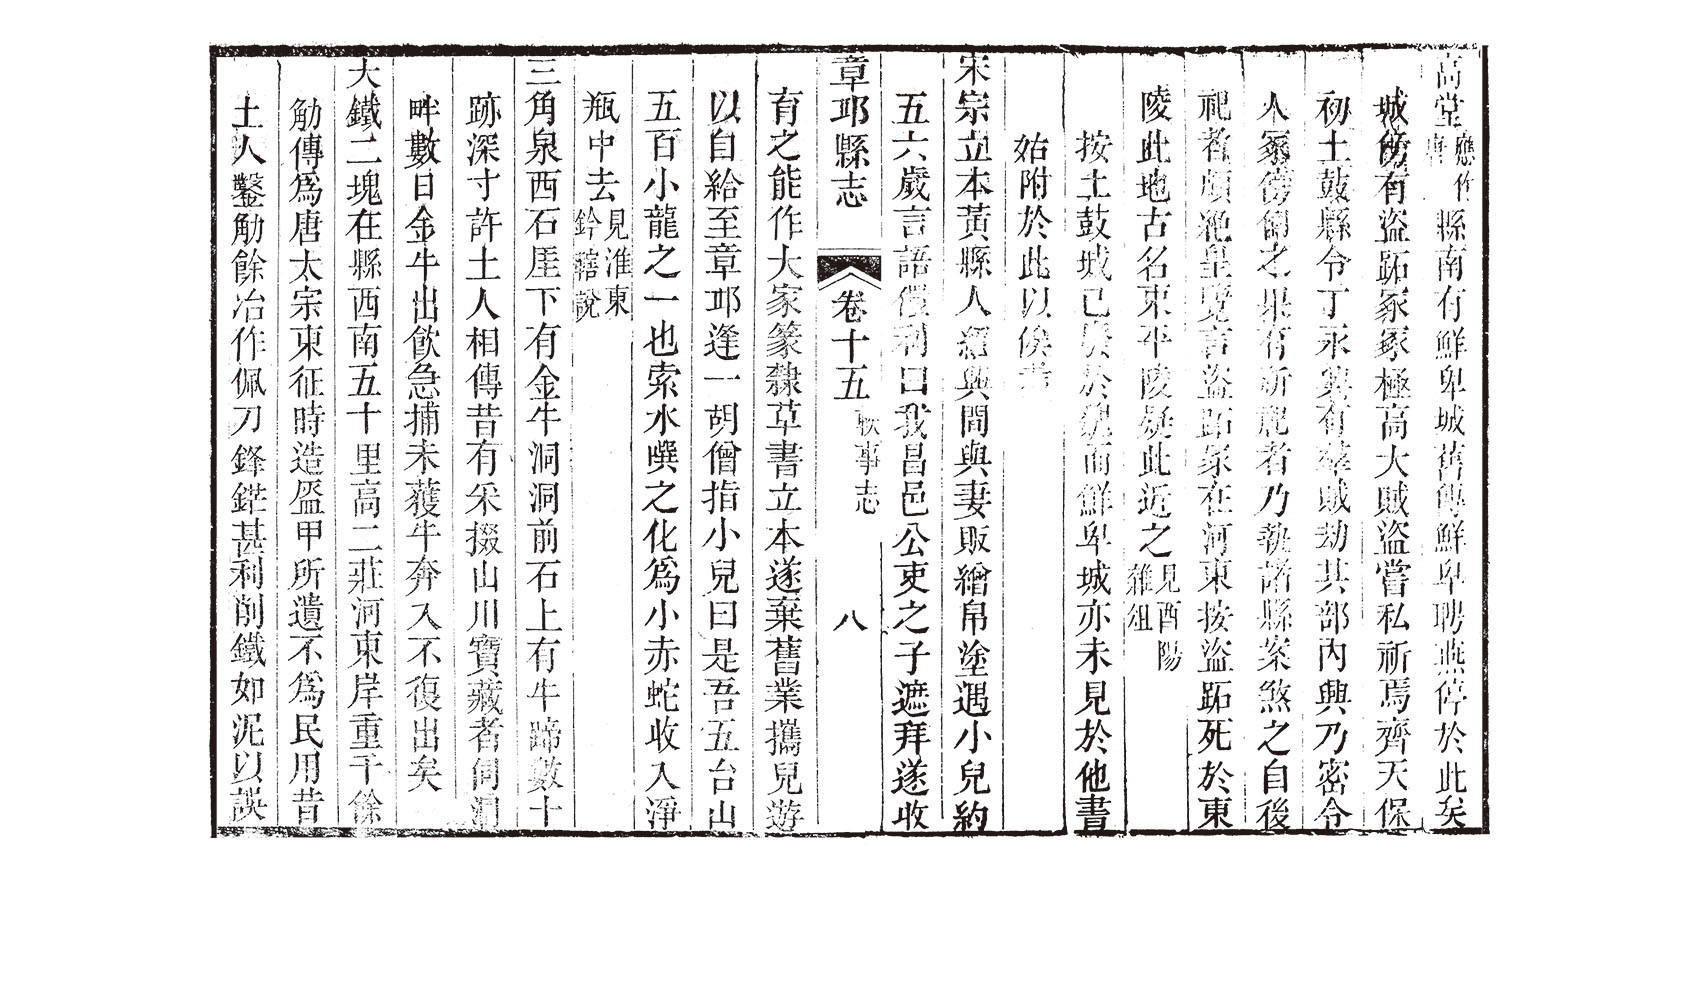 高堂應作唐縣南有鮮卑城舊傳鮮卑聘燕停於此矣
城傍有盜跖冢冢極高大賊盜嘗私祈焉齊天保
初土鼓縣令丁永興有羣賊劫其部內興乃密令
人冢傍伺之果有祈祀者乃執詣縣案煞之自後
祀者頗絕皇覽言盜跖冢在河東按盜跖死於東
陵此地古名東平陵疑此近之見酉陽雜俎
按土鼓城已廢於魏而鮮卑城亦未見於他書
姑附於此以俟考
宋宗立本黃縣人紹興間與妻販繒帛塗遇小兒約
五六歲言語俚利曰我昌邑公吏之子遮拜遂收
章邱縣志 卷十五 軼事志 八
育之能作大家篆隸草書立本遂棄舊業攜兒遊
以自給至章邱逢一胡僧指小兒曰是吾五台山
五百小龍之一也索水噀之化為小赤蛇收入淨
瓶中去見淮東鈐轄說
三角泉西石厓下有金牛洞洞前石上有牛蹄數十
跡深寸許土人相傳昔有采掇山川寶藏者伺洞
畔數日金牛出飲急捕未獲牛奔入不復出矣
大鐵二塊在縣西南五十里高二莊河東岸重千餘
觔傳為唐太宗東征時造盔甲所遺不為民用昔
土人鑿觔餘冶作佩刀鋒鋩甚利削鐵如泥以誤